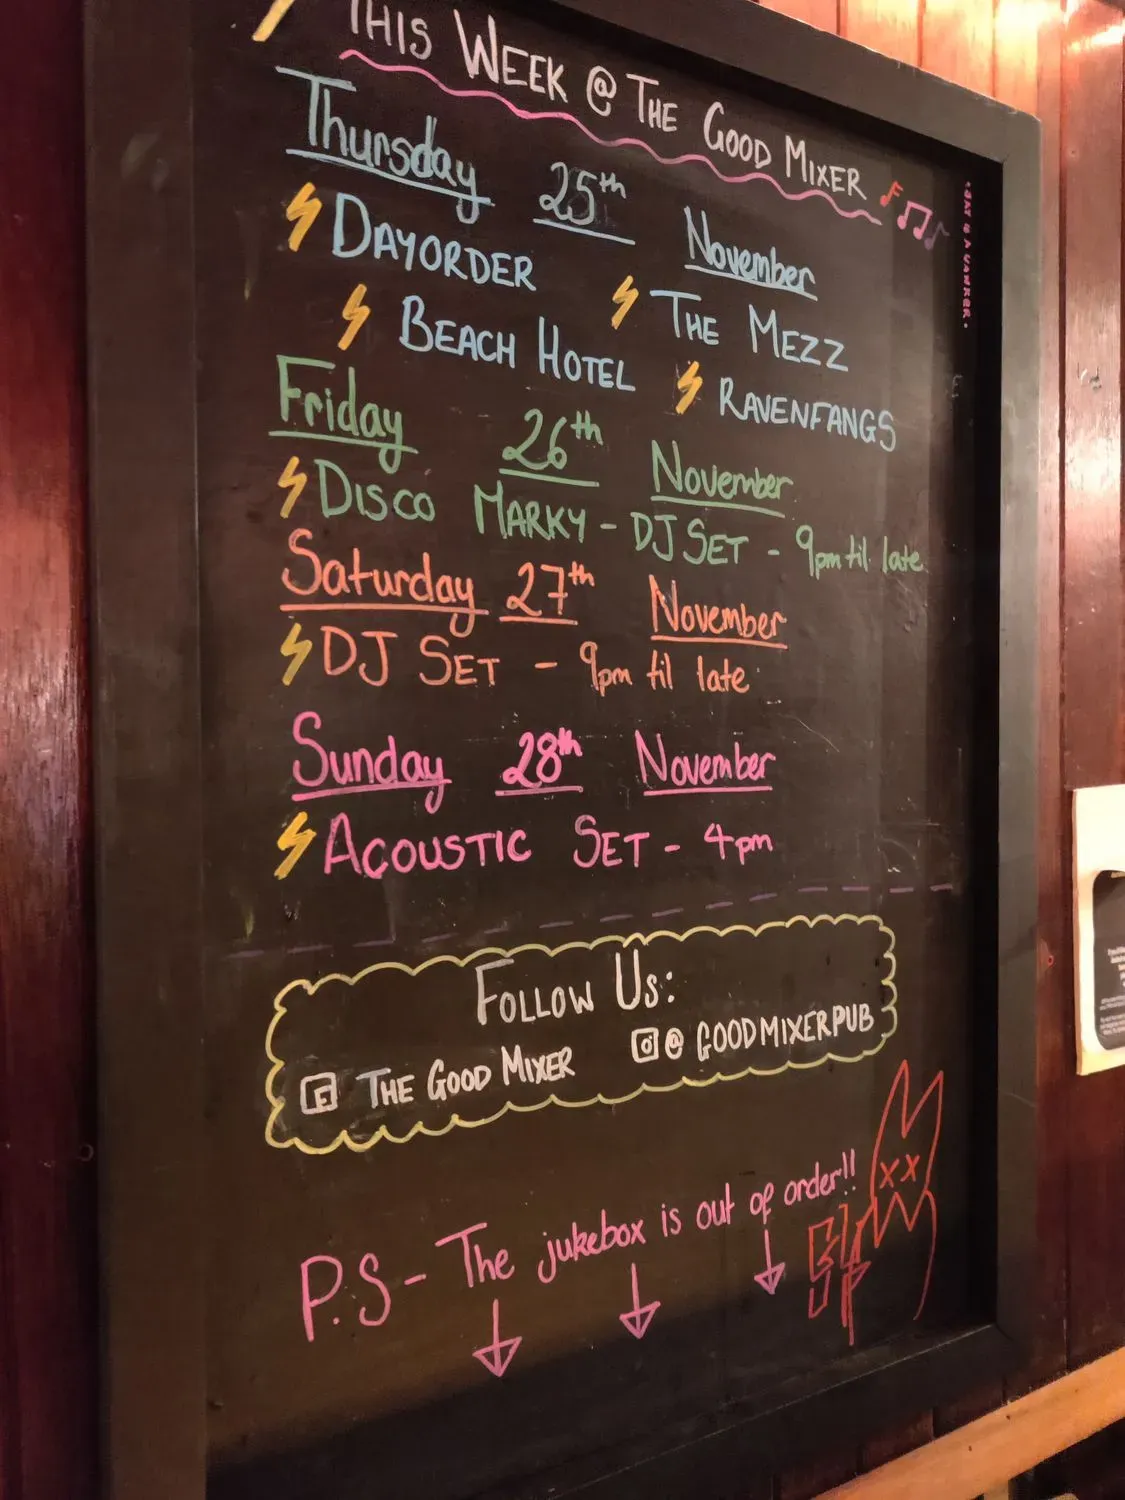 THIS WEEK @ THE GOOD MIXER
Thursday 25th November
DAYORDER
THE MEZZ
BEACH HOTEL
RAVENFANGS
Friday 26th November
DISCO MARKY - DJ SET - 9pm til late
Saturday 27th November
DJ SET - 9pm til late
Sunday 28th November
ACOUSTIC SET - 4pm
FOLLOW US:
THE GOOD MIXER
@ GOODMIXERPUB
P.S - The jukebox is out of order!!